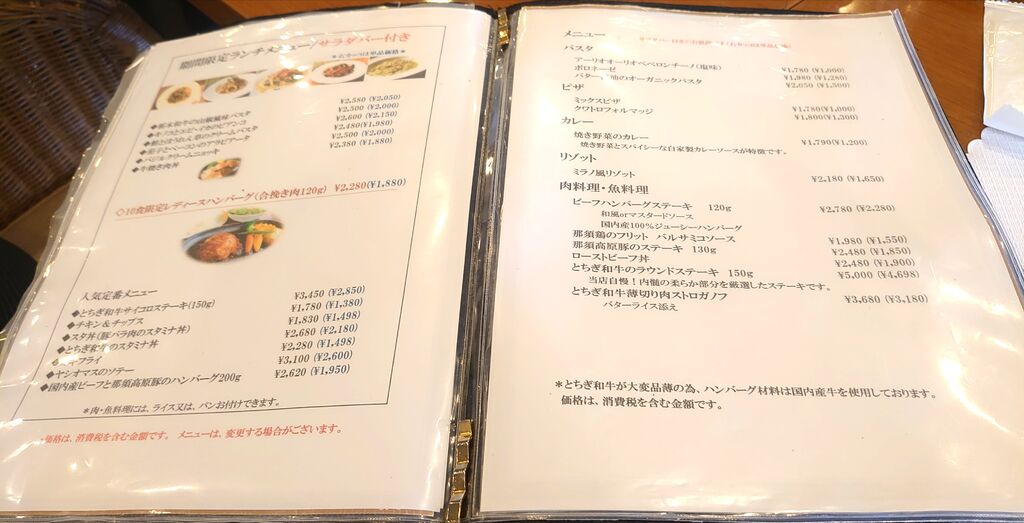 期間限定ランチメニュー/サラダバー付き
＊右カッコは単品価格＊
◆栃木和牛の山椒風味パスタ ¥2,580 (¥2,050)
¥2,500 (¥2,000)
¥2,600 (¥2,150)
◆茄子とベーコンのアラビアータ ¥2,480(¥1,980)
◆バジルクリームニョッキ ¥2,500 (¥2,000)
◆牛焼き肉丼 ¥2,380 (¥1,880)
◇10食限定レディースハンバーグ(合挽き肉120g) ¥2,280(¥1,880)
人気定番メニュー
◆とちぎ和牛サイコロステーキ(150g) ¥3,450 (¥2,850)
◆チキン＆チップス ¥1,780 (¥1,380)
◆スタ丼(豚バラ肉のスタミナ丼) ¥1,830 (¥1,498)
◆とちぎ和牛のスタミナ丼 ¥2,680 (¥2,180)
フライ ¥2,280 (¥1,498)
◆ヤシオマスのソテー ¥3,100 (¥2,600)
◆国内産ビーフと那須高原豚のハンバーグ200g ¥2,620 (¥1,950)
＊肉・魚料理には、ライス又は、パンお付けできます。
価格は、消費税を含む金額です。 メニューは、変更する場合がございます。
メニュー
パスタ
アーリオオーリオペペロンチーノ(塩味) ¥1,780 (¥1,000)
ボロネーゼ ¥1,980 (¥1,280)
バター 油のオーガニックパスタ ¥2,050 (¥1,300)
ピザ
ミックスピザ ¥1,780(¥1,000)
クワトロフォルマッジ ¥1,800(¥1,200)
カレー
焼き野菜のカレー ¥1,790(¥1,200)
焼き野菜とスパイシーな自家製カレーソースが特徴です。
リゾット
ミラノ風リゾット ¥2,180 (¥1,650)
肉料理・魚料理
ビーフハンバーグステーキ 120g ¥2,780 (¥2,280)
和風orマスタードソース
国内産100%ジューシーハンバーグ
那須鶏のフリット バルサミコソース ¥1,980 (¥1,550)
那須高原豚のステーキ 130g ¥2,480 (¥1,850)
ローストビーフ丼 ¥2,480 (¥1,900)
とちぎ和牛のラウンドステーキ 150g ¥5,000 (¥4,698)
当店自慢！内髄の柔らか部分を厳選したステーキです。
とちぎ和牛薄切り肉ストロガノフ ¥3,680 (¥3,180)
バターライス添え
＊とちぎ和牛が大変品薄の為、ハンバーグ材料は国内産牛を使用しております。
価格は、消費税を含む金額です。